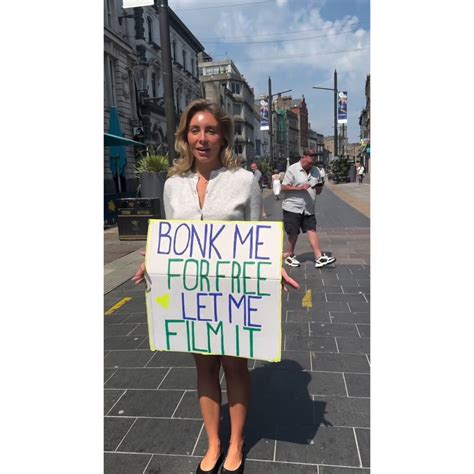 BONK ME
FOR FREE
LET ME
FILM IT